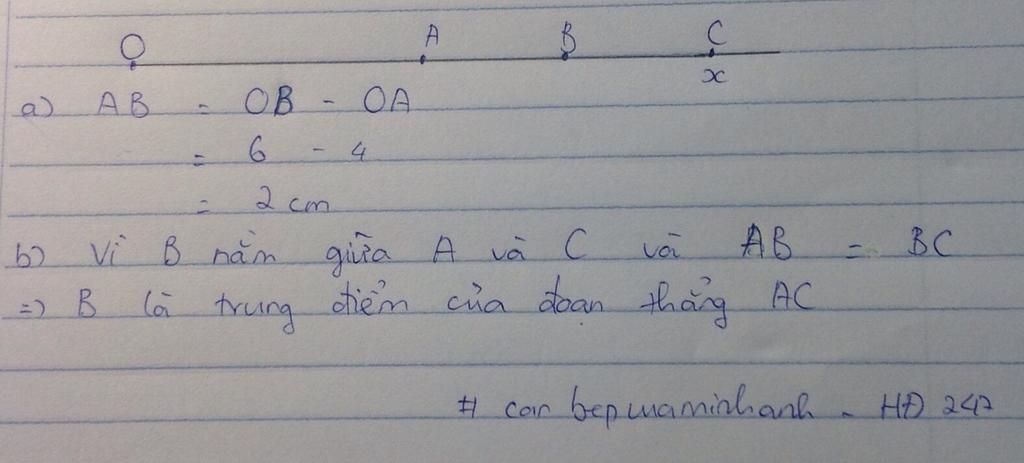 O A B C
x
a) AB = OB - OA
= 6 - 4
= 2 cm
b) Vì B nằm giữa A và C và AB = BC
=) B là trung điểm của đoạn thẳng AC
# con bepmuaminhanh - HĐ 247